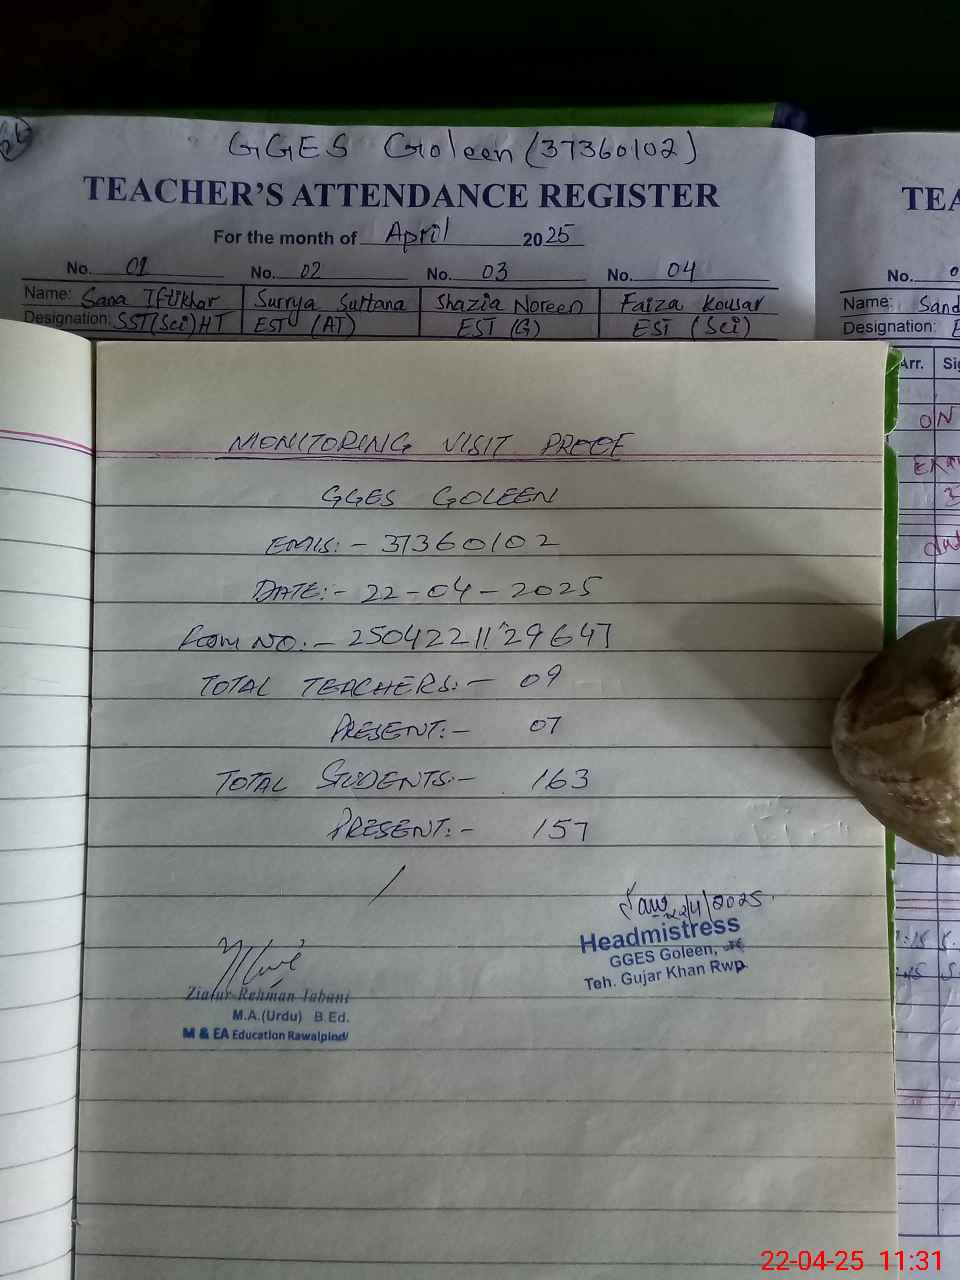 GGES Goleen (37360102)
TEACHER'S ATTENDANCE REGISTER
For the month of April 2025
No. 01 No. 02 No. 03 No. 04
Name: Sana Iftikhar Surrya Sultana Shazia Noreen Faiza Kousar
Designation: SST(Sci) HT EST (AT) EST (G) EST (Sci)
TEA
No.
Name: Sand
Designation: E
Arr. Sig
ON
MONITORING VISIT PROOF
GGES GOLEEN
EMIS:- 37360102
DATE:- 22-04-2025
FORM NO.:- 25042211129647
TOTAL TEACHERS:- 09
PRESENT:- 07
TOTAL STUDENTS:- 163
PRESENT:- 157
22/4/2025
Headmistress
GGES Goleen,
Teh. Gujar Khan Rwp
Ziafur Rehman Tabani
M.A.(Urdu) B.Ed.
M & EA Education Rawalpindi
22-04-25 11:31